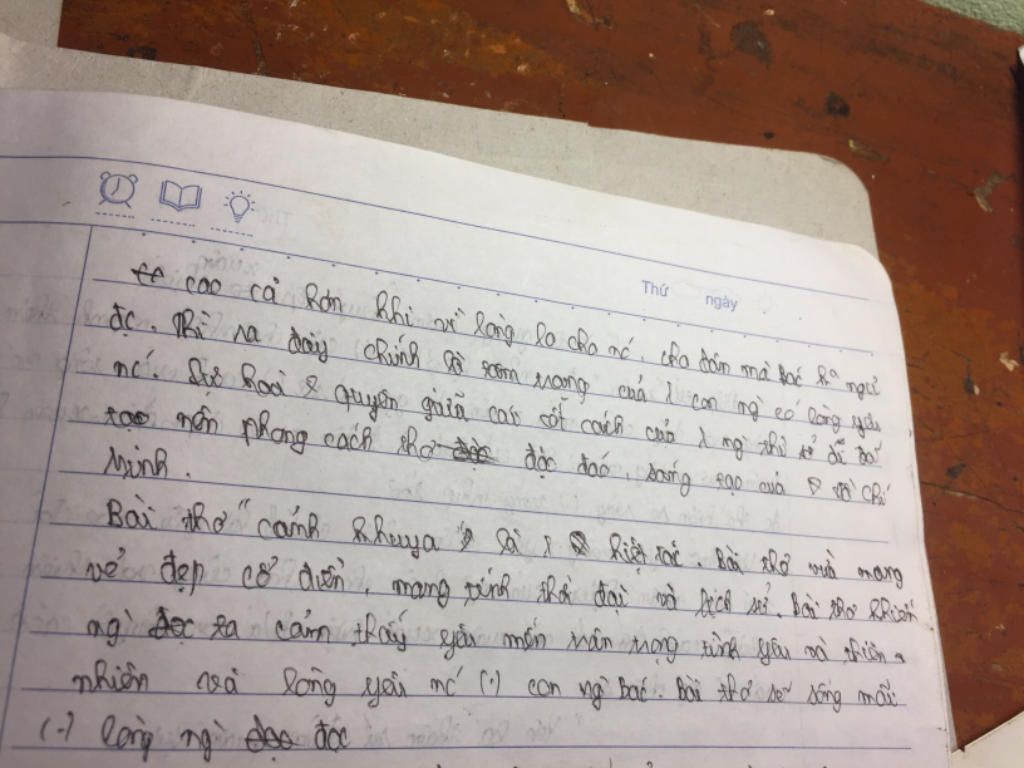 Thứ ngày
cao cả hơn khi vì lòng lo cho nć, cho dân mà Bác k ngủ
đc. Thì ra đây chính là tâm trạng của 1 con ng có lòng yêu
nć. Sự hoà quyện giữa các cốt cách của 1 ng thi sĩ đã
tạo nên phong cách thơ độc đáo, sáng tạo của Hồ Chí
Minh.
Bài thơ "cảnh khuya" là 1 kiệt tác. Bài thơ vừa mang
vẻ đẹp cổ điển, mang tính thời đại và lịch sử. Bài thơ khiến
ng ta cảm thấy yêu mến trân trọng tình yêu và thiên
nhiên và lòng yêu nć (.) con ng Bác. Bài thơ sẽ sống mãi
(.) lòng ng đọc